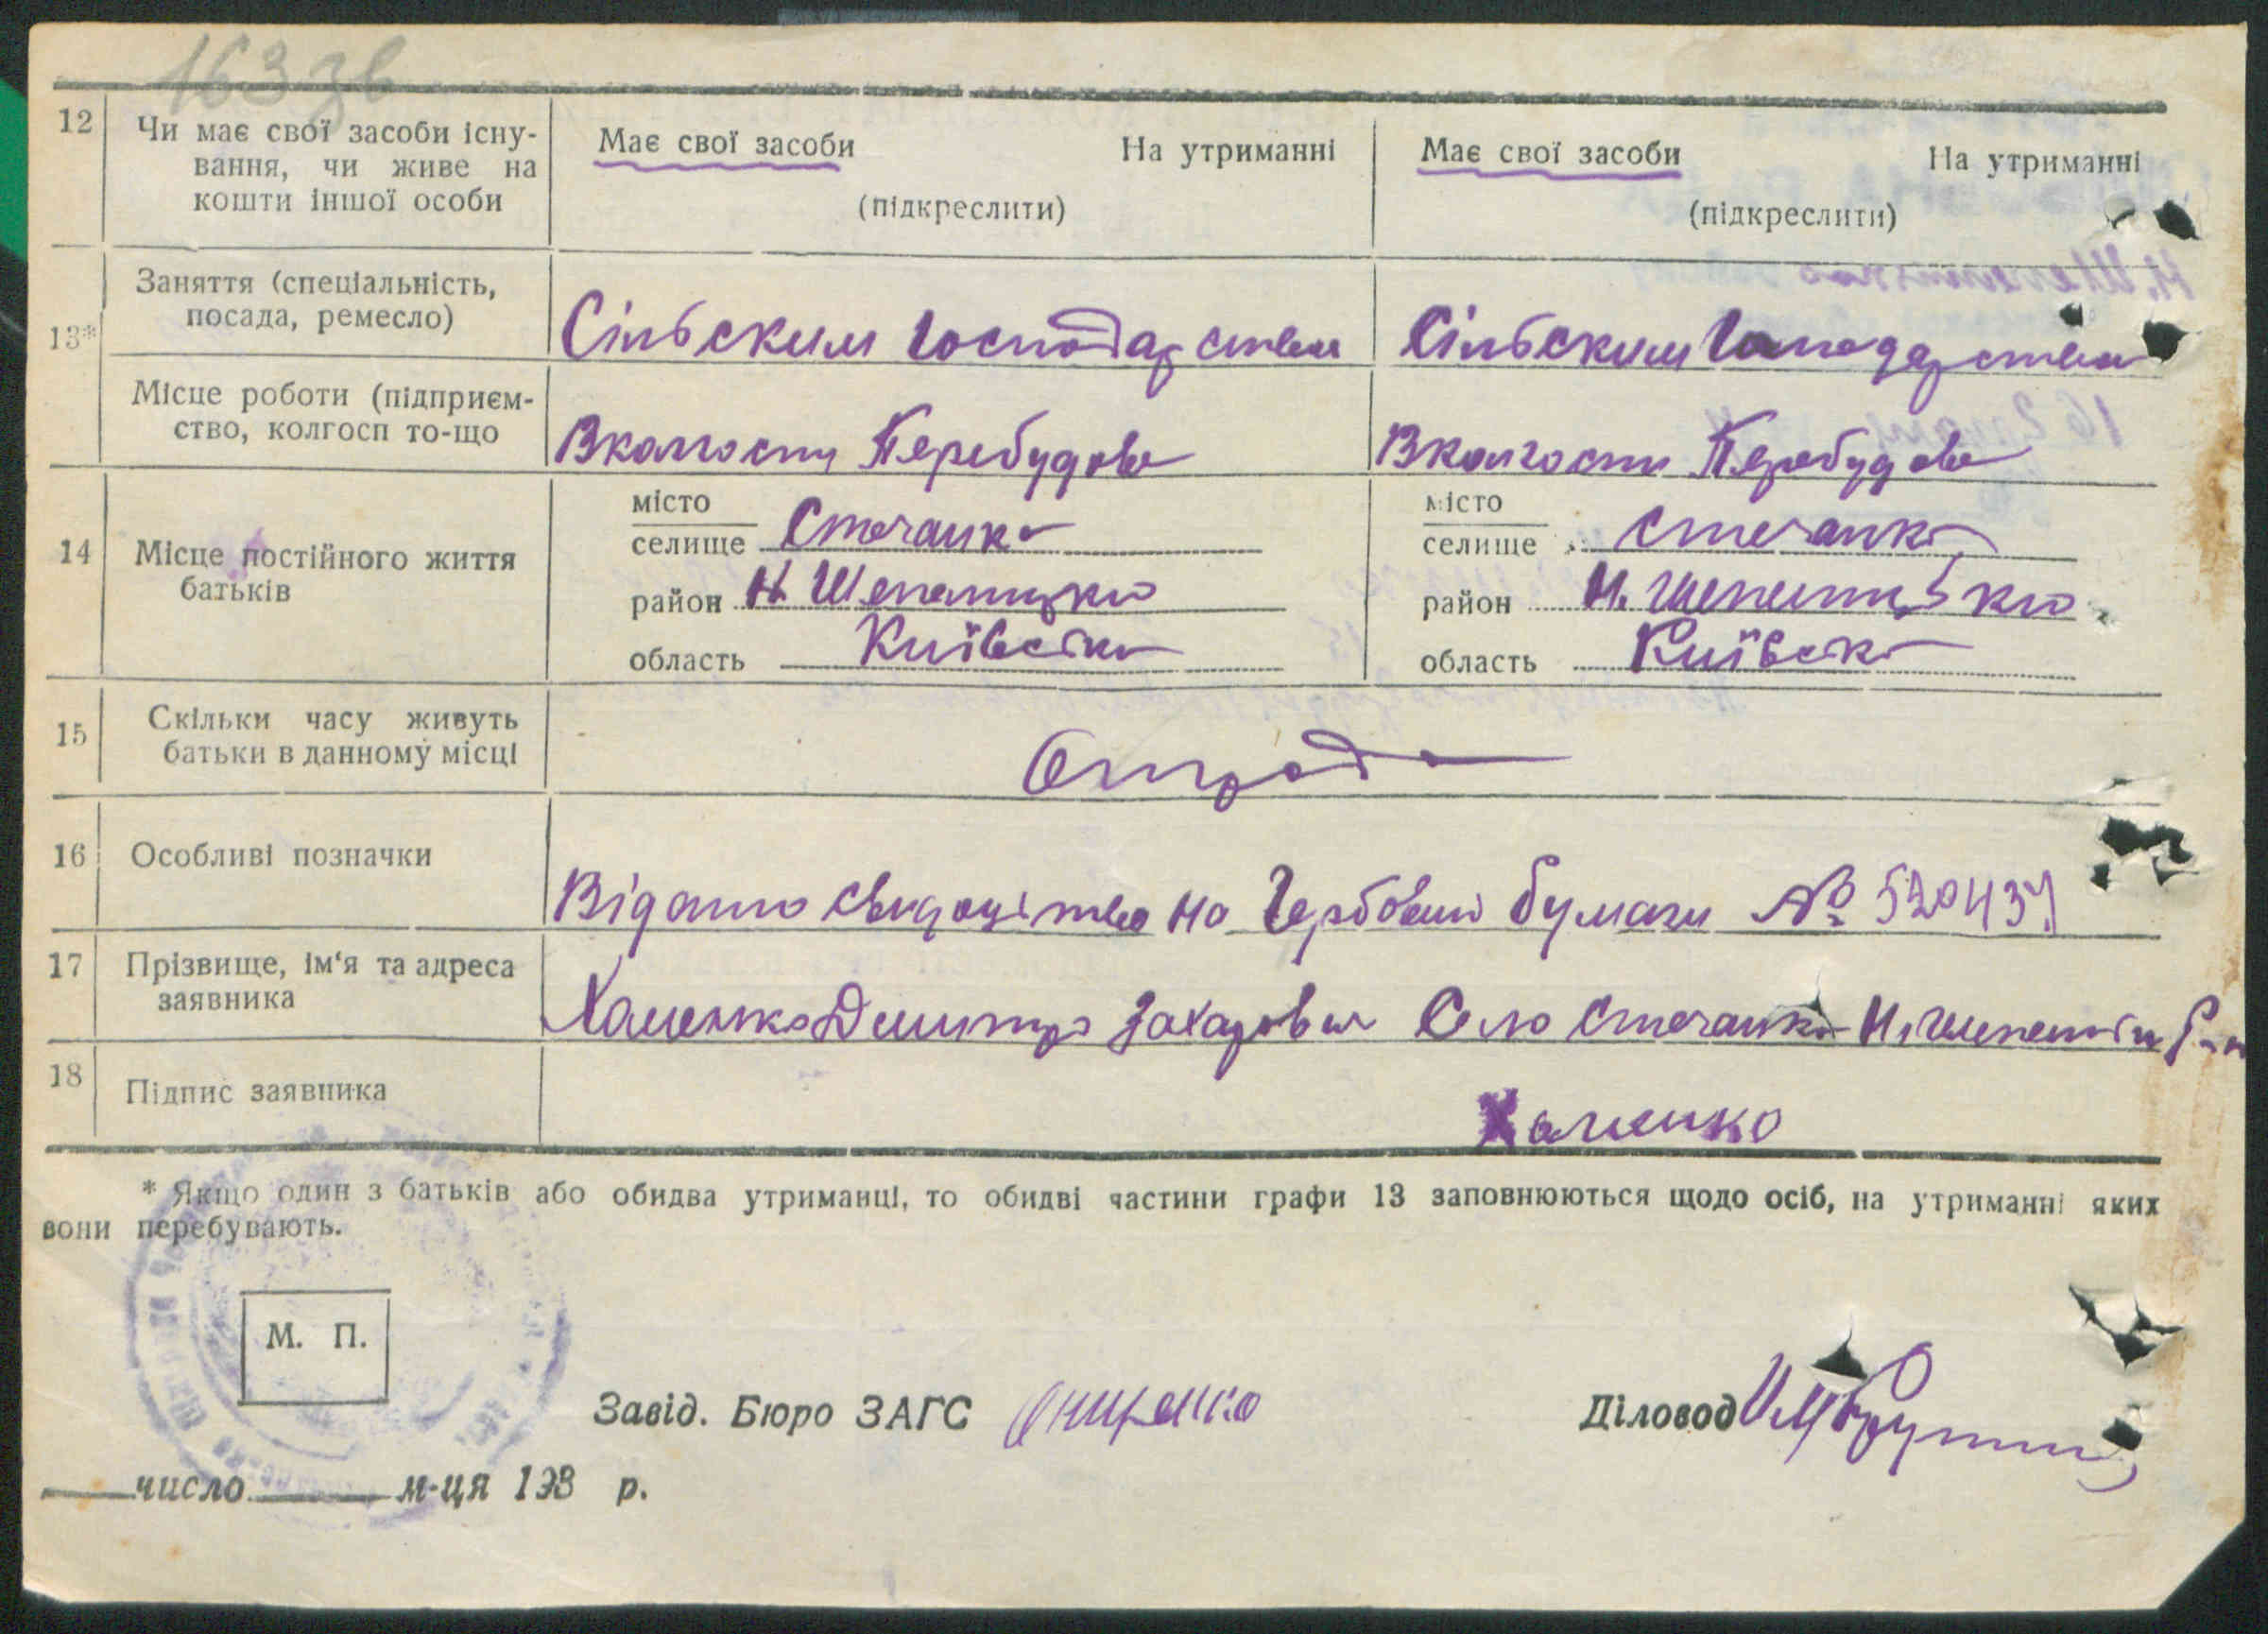 163 зв
12 Чи має свої засоби існу- Має свої засоби На утриманні Має свої засоби На утриманні
вання, чи живе на
кошти іншої особи (підкреслити) (підкреслити)
13* Заняття (спеціальність,
посада, ремесло) Сільским Господарством Сільским Господарством
Місце роботи (підприєм-
ство, колгосп то-що Вколгоспи Перебудова Вколгоспи Перебудова
14 Місце постійного життя
батьків
місто місто
селище Стечанка селище Стечанка
район Н. Шепелицкий район Н.
область Київська область Київска
15 Скільки часу живуть
батьки в данному місці
Отрода
16 Особливі позначки
Відано свидоцтво на Гербовий бумаги №
17 Прізвище, ім‘я та адреса
заявника
Хаменко Димитро Захарович Село Стечанка Н.
18 Підпис заявника
Хаменко
* Якщо один з батьків або обидва утриманці, то обидві частини графи 13 заповнюються щодо осіб, на утриманні яких
вони перебувають.
М. П.
Завід. Бюро ЗАГС Онищенко Діловод
число м-ця 193 р.